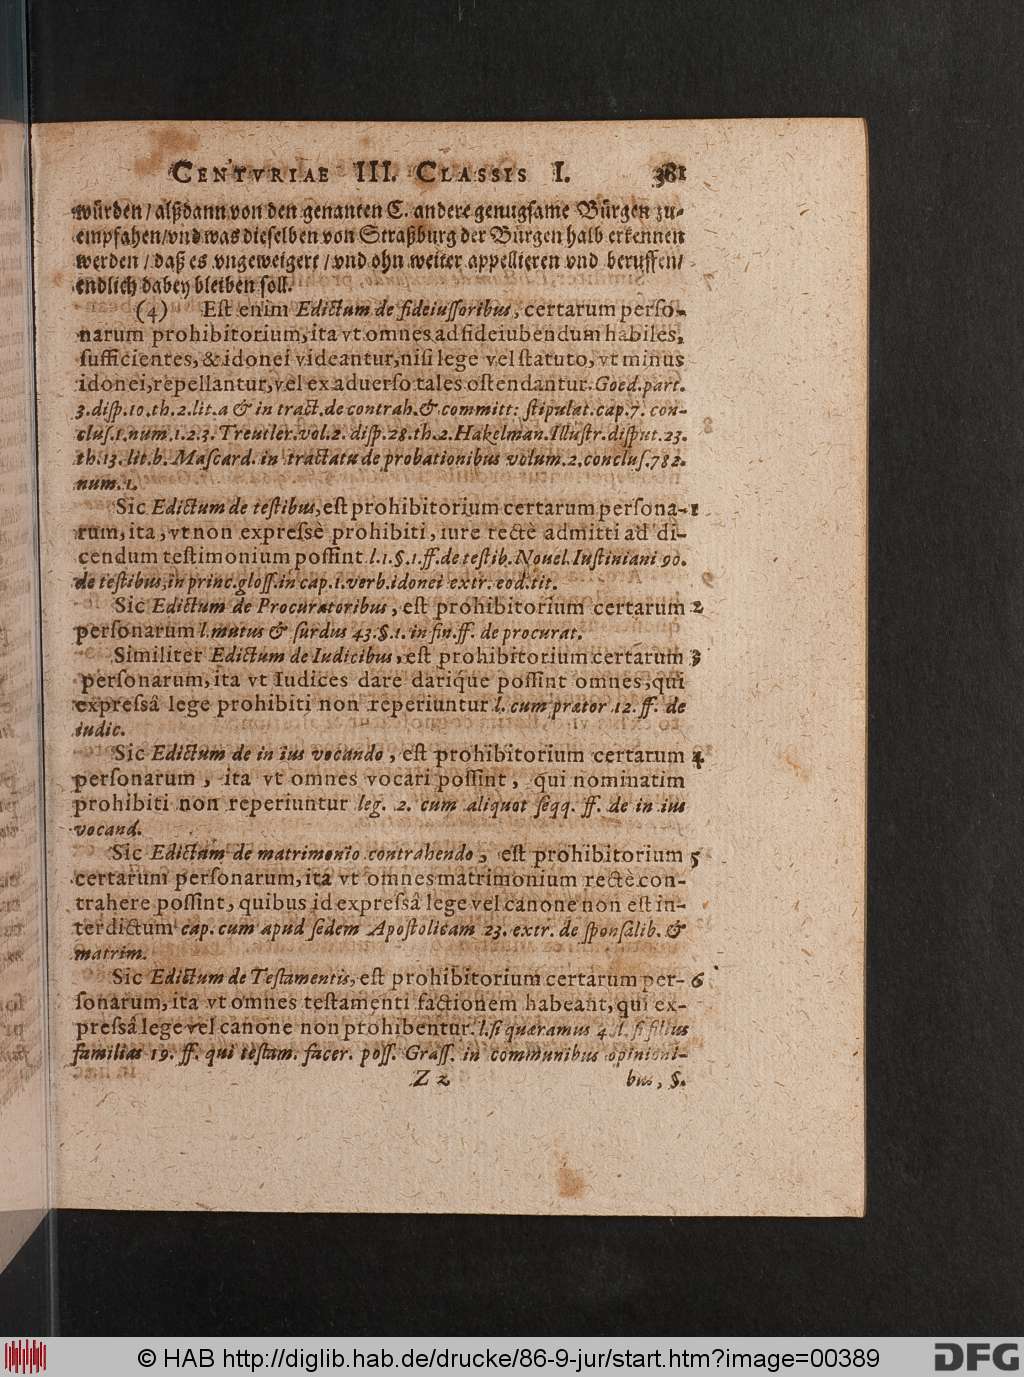 CENTVRIAE III. CLASSIS I. 381
würden / alßdann von den genanten C. andere genugsame Bürgen zu-
empfahen / vnd was dieselben von Straßburg der Bürgen halb erkennen
werden / daß es vngeweigert / vnd ohn weiter appellieren vnd beruffen /
endlich dabey bleiben soll.
(4) Est enim Edictum de fideiussoribus, certarum perso-
narum prohibitorium, ita vt omnes ad fideiubendum habiles,
sufficientes, & idonei videantur, nisi lege vel statuto, vt minus
idonei, repellantur, vel ex aduerso tales ostendantur. Goed. part.
3. disp. 10. th. 2. lit. a & in tract. de contrah. & committ: stipulat. cap. 7. con-
clus. 1. num. 1. 2. 3. Treutler. vol. 2. disp. 28. th. 2. Hakelman. Illustr. disput. 23.
th. 13. lit. b. Mascard. in tractatu de probationibus volum. 2. conclus. 782.
num. 1.
Sic Edictum de testibus, est prohibitorium certarum persona- 1
rum, ita, vt non expressè prohibiti, iure rectè admitti ad di-
cendum testimonium possint l. 1. §. 1. ff. de testib. Nouel. Iustiniani 90.
de testibus, in princ. gloss. in cap. 1. verb. idonei extr. eod. tit.
Sic Edictum de Procuratoribus, est prohibitorium certarum 2
personarum l. mutus & surdus 43. §. 1. in fin. ff. de procurat.
Similiter Edictum de Iudicibus, est prohibitorium certarum 3
personarum, ita vt Iudices dare darique possint omnes, qui
expressâ lege prohibiti non reperiuntur l. cum prætor 12. ff. de
iudic.
Sic Edictum de in ius vocando, est prohibitorium certarum 4
personarum, ita vt omnes vocari possint, qui nominatim
prohibiti non reperiuntur leg. 2. cum aliquot seqq. ff. de in ius
vocand.
Sic Edictum de matrimonio contrahendo, est prohibitorium 5
certarum personarum, ita vt omnes matrimonium rectè con-
trahere possint, quibus id expressâ lege vel canone non est in-
terdictum cap. cum apud sedem Apostolicam 23. extr. de sponsalib. &
matrim.
Sic Edictum de Testamentis, est prohibitorium certarum per- 6
sonarum, ita vt omnes testamenti factionem habeant, qui ex-
pressâ lege vel canone non prohibentur. l. si quæramus 4. l. si filius
familias 19. ff. qui testam. facer. poss. Grass. in communibus opinioni-
Z 2 bus, §.
© HAB http://diglib.hab.de/drucke/86-9-jur/start.htm?image=00389
DFG